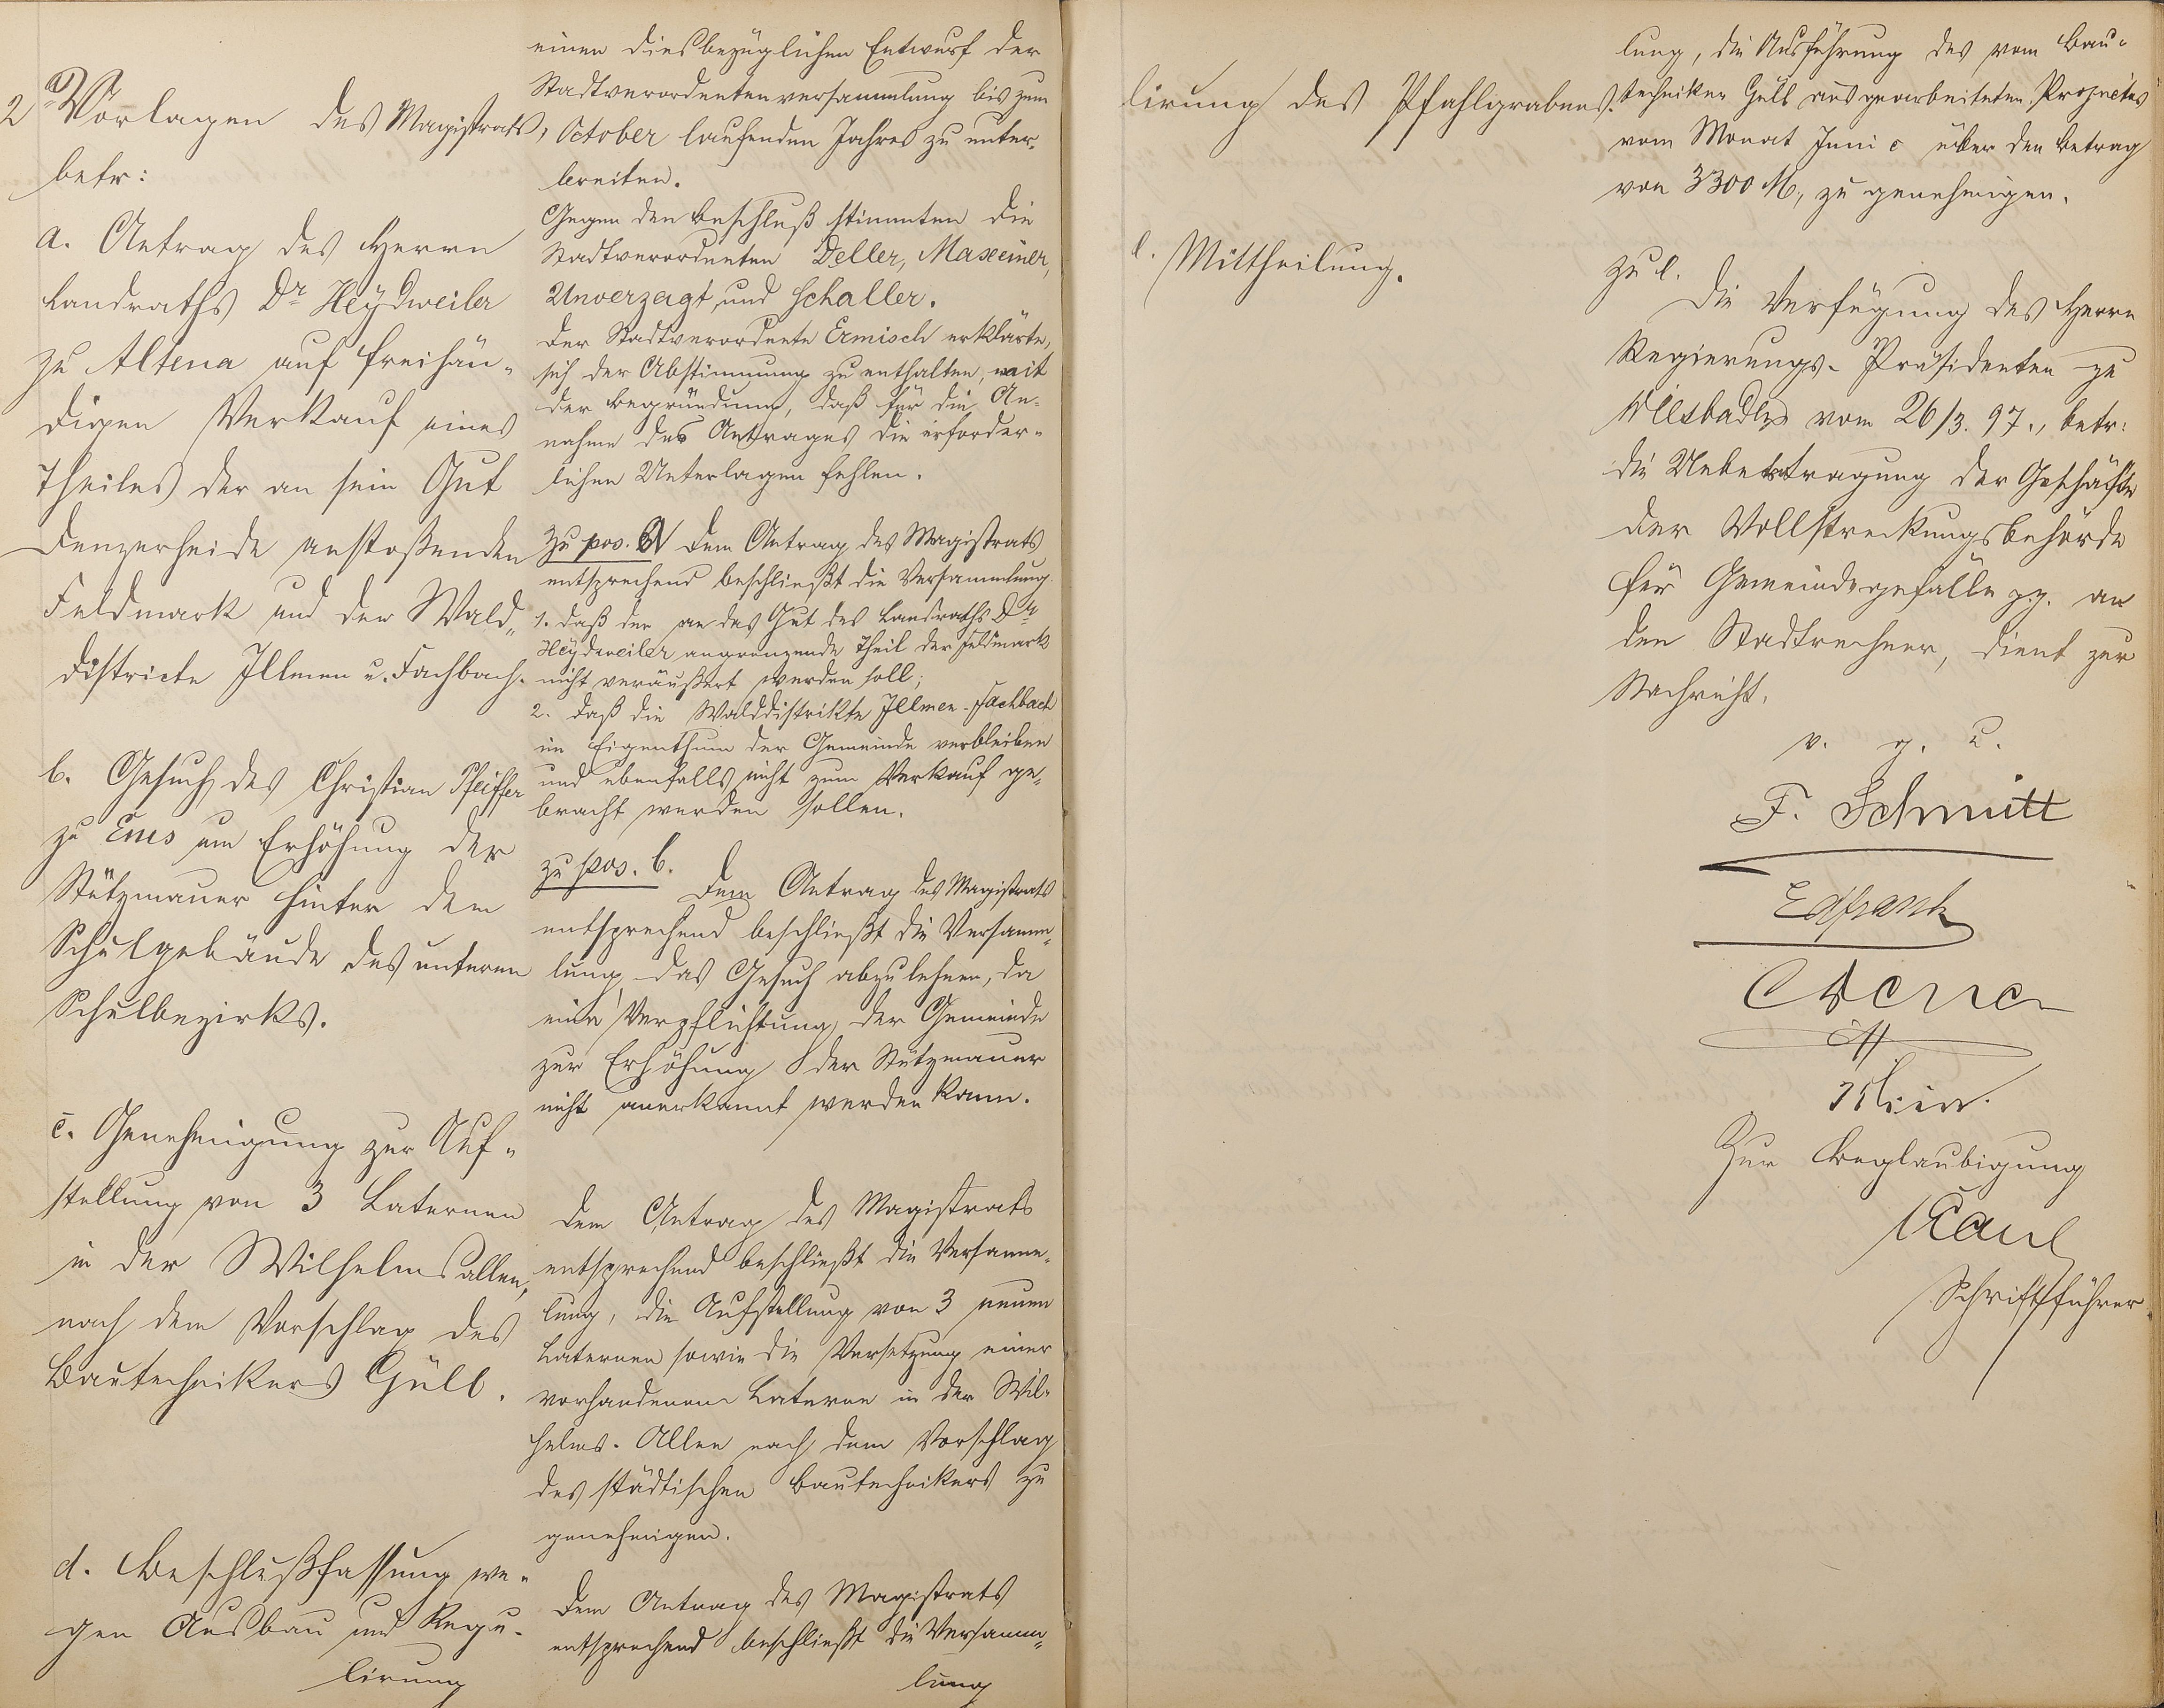 2) Vorlagen des Magistrats,
betr:
a. Antrag des Herrn
Landraths Dr Heydweiler
zu Altena auf freihän-
digen Verkauf eines
Theiles der an sein Gut
Denzerheide anstoßenden
Feldmark und der Wald-
districte Illmen u. Fachbach.
b. Gesuch des Christian Pfeiffer
zu Ems um Erhöhung der
Stützmauer hinter dem
Schulgebäude des unteren
Schulbezirks.
c. Genehmigung zur Auf-
stellung von 3 Laternen
in der Wilhelmsallee,
nach dem Vorschlag des
Bautechnikers Gülb.
d. Beschlußfassung we-
gen Ausbau und Regu-
lirung
einen diesbezüglichen Entwurf der
Stadtverordnetenversammlung bis zum
October laufenden Jahres zu unter-
breiten.
Gegen den Beschluß stimmten die
Stadtverordneten Deller, Maxeiner,
Unverzagt und Schaller.
Der Stadtverordnete Ermisch erklärte,
sich der Abstimmung zu enthalten, mit
der Begründung, daß für die An-
nahme des Antrages die erforder-
lichen Unterlagen fehlen.
Zu pos. a Dem Antrag des Magistrats
entsprechend beschließt die Versammlung
1. daß der an das Gut des Landraths Dr
Heydweiler angrenzende Theil der Feldmark
nicht veräußert werden soll;
2. daß die Walddistrikte Illmen-Fachbach
im Eigenthum der Gemeinde verbleiben
und ebenfalls nicht zum Verkauf ge-
bracht werden sollen.
zu pos. b.
Dem Antrag des Magistrats
entsprechend beschließt die Versamm-
lung das Gesuch abzulehnen, da
eine Verpflichtung der Gemeinde
zur Erhöhung der Stützmauer
nicht anerkannt werden kann.
Dem Antrag des Magistrats
entsprechend beschließt die Versamm-
lung, die Aufstellung von 3 neuen
Laternen sowie die Versetzung einer
vorhandenen Laterne in der Wil-
helms-Allee nach dem Vorschlag
des städtischen Bautechnikers zu
genehmigen.
Dem Antrag des Magistrats
entsprechend beschließt die Versamm-
lung
lirung des Pfahlgrabens.
e. Mittheilung.
lung, die Ausführung des vom Bau-
techniker Gülb ausgearbeiteten Projectes
vom Monat Juni c über den Betrag
von 3300 M, zu genehmigen.
zu e.
Die Verfügung des Herrn
Regierungs-Präsidenten zu
Wiesbaden vom 26/3. 97., betr:
die Uebertragung der Geschäfte
der Vollstreckungsbehörde
für Gemeindegefälle pp. an
den Stadtrechner, dient zur
Nachricht.
v. g. u.
F. Schmitt
Zur Beglaubigung
Kaul
Schriftführer